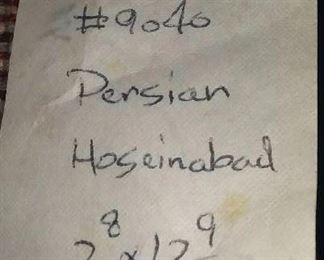 #9040
Persian
Hoseinabad
2⁸ x 12⁹